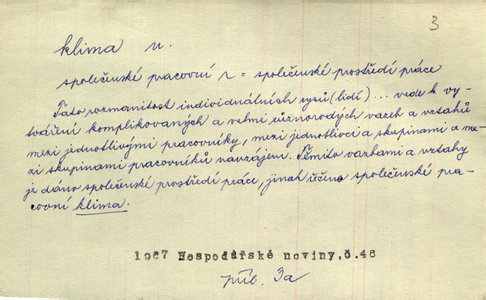 3
klima n.
společenské pracovní k = společenské prostředí práce
Tato rozmanitost individuálních rysů (lidí) ... vede k vy-
tváření komplikovaných a velmi různorodých vazeb a vztahů
mezi jednotlivými pracovníky, mezi jednotlivci a skupinami a me-
zi skupinami pracovníků navzájem. Těmito vazbami a vztahy
je dáno společenské prostředí práce, jinak řečeno společenské pra-
covní klima.
1967 Hospodářské noviny,č.48
příl. 3a